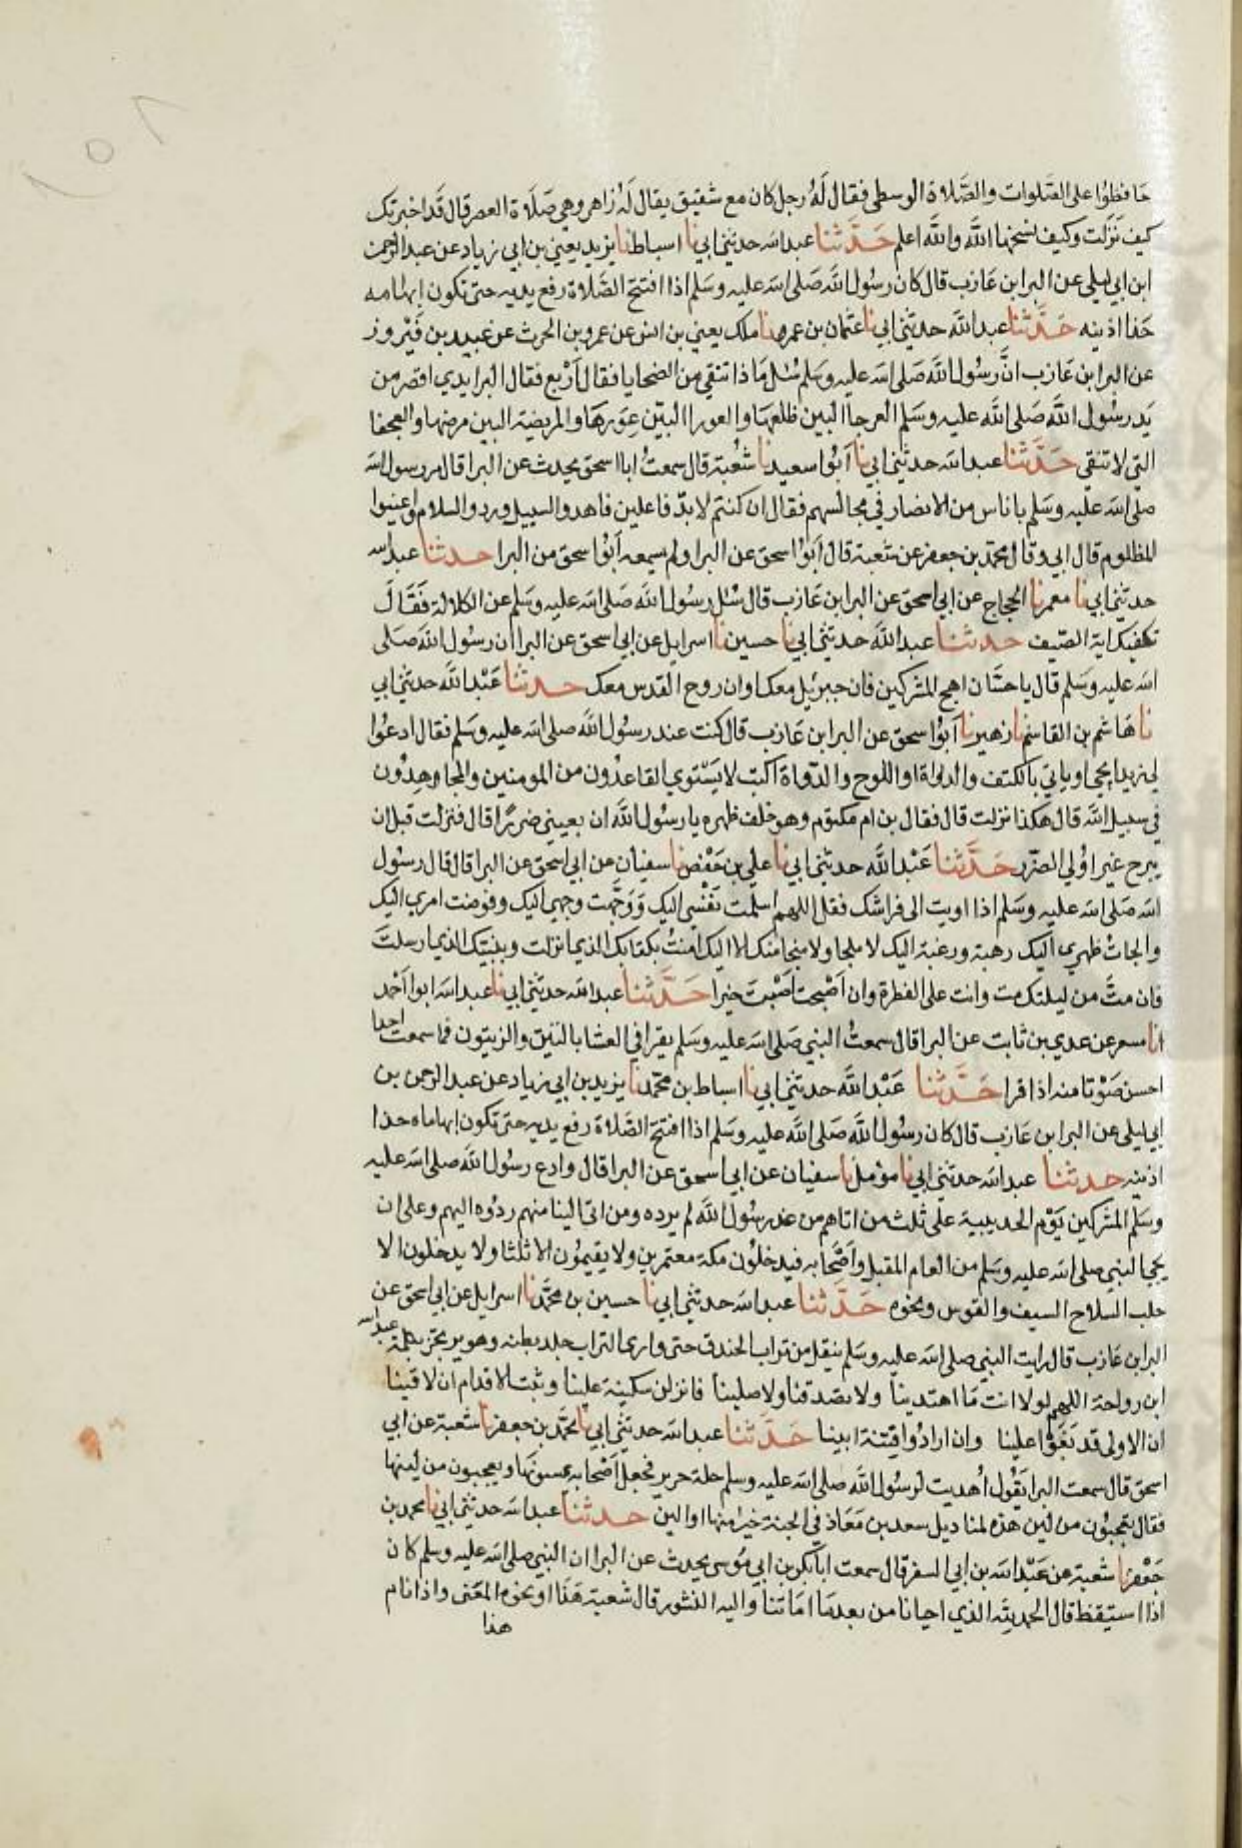 حافظوا على الصلوات والصلاة الوسطى فقال له رجل كان مع شقيق يقال له زاهر وهي صلاة العصر قال قد اخبرتك
كيف نزلت وكيف نسخها الله والله اعلم حدثنا عبد الله حدثني ابي نا اسباط نا يزيد يعني بن ابي زياد عن عبد الرحمن
ابن ابي ليلى عن البرا بن عازب قال كان رسول الله صلى الله عليه وسلم اذا افتتح الصلاة رفع يديه حتى تكون ابهامه
حذا اذنيه حدثنا عبد الله حدثني ابي نا عثمان بن عمر نا ملك يعني بن انس عن عمرو بن الحرث عن عبيد بن فيروز
عن البرا بن عازب ان رسول الله صلى الله عليه وسلم سئل ماذا تنقي من الضحايا فقال اربع فقال البرا يدي اقصر من
يد رسول الله صلى الله عليه وسلم العرجا البين ظلعها والعورا البين عورها والمريضة البين مرضها والعجفا
التي لا تنقي حدثنا عبد الله حدثني ابي نا ابوا سعيد نا شعبة قال سمعت ابا اسحق يحدث عن البرا قال مر رسول الله
صلى الله عليه وسلم باناس من الانصار في مجالسهم فقال ان كنتم لا بد فاعلين فاهدوا السبيل وردوا السلام واعينوا
المظلوم قال ابي وقال محمد بن جعفر عن شعبة قال ابوا اسحق عن البرا ولم يسمعه ابوا اسحق من البرا حدثنا عبد الله
حدثني ابي نا معمر نا الحجاج عن ابي اسحق عن البرا بن عازب قال سئل رسول الله صلى الله عليه وسلم عن الكلالة فقال
تكفيك اية الصيف حدثنا عبد الله حدثني ابي نا حسين نا اسرايل عن ابي اسحق عن البرا ان رسول الله صلى
الله عليه وسلم قال يا حسان اهج المشركين فان جبرئيل معك او ان روح القدس معك حدثنا عبد الله حدثني ابي
نا هاشم بن القاسم نا زهير نا ابوا اسحق عن البرا بن عازب قال كنت عند رسول الله صلى الله عليه وسلم فقال ادعوا
لي زيدا يجي او ياتي بالكتف والدواة او اللوح والدواة اكتب لا يستوي القاعدون من المومنين والمجاهدون
في سبيل الله قال هكذا نزلت قال فقال بن ام مكتوم وهو خلف ظهره يا رسول الله ان بعيني ضررا قال فنزلت قبل ان
يبرح غير اولي الضرر حدثنا عبد الله حدثني ابي نا علي بن حفص نا سفيان عن ابي اسحق عن البرا قال قال رسول
الله صلى الله عليه وسلم اذا اويت الى فراشك فقل اللهم اسلمت نفسي اليك ووجهت وجهي اليك وفوضت امري اليك
والجات ظهري اليك رهبة ورغبة اليك لا ملجا ولا منجا منك الا اليك امنت بكتابك الذي انزلت وبنبيك الذي ارسلت
فان مت من ليلتك مت وانت على الفطرة وان اصبحت اصبت خيرا حدثنا عبد الله حدثني ابي نا عبد الله ابوا احمد
انا مسعر عن عدي بن ثابت عن البرا قال سمعت النبي صلى الله عليه وسلم يقرا في العشا بالتين والزيتون فما سمعت احدا
احسن صوتا منه اذا قرا حدثنا عبد الله حدثني ابي نا اسباط بن محمد نا يزيد بن ابي زياد عن عبد الرحمن بن
ابي ليلى عن البرا بن عازب قال كان رسول الله صلى الله عليه وسلم اذا افتتح الصلاة رفع يديه حتى تكون ابهاماه حذا
اذنيه حدثنا عبد الله حدثني ابي نا مؤمل نا سفيان عن ابي اسحق عن البرا قال وادع رسول الله صلى الله عليه
وسلم المشركين يوم الحديبية على ثلث من اتاهم من عند رسول الله لم يرده ومن اتى الينا منهم ردوه اليهم وعلى ان
يجي النبي صلى الله عليه وسلم من العام المقبل واصحابه فيدخلون مكة معتمرين ولا يقيمون الا ثلثا ولا يدخلون الا
جلب السلاح السيف والقوس ونحوه حدثنا عبد الله حدثني ابي نا حسين بن محمد نا اسرايل عن ابي اسحق عن
البرا بن عازب قال رايت النبي صلى الله عليه وسلم ينقل من تراب الخندق حتى وارى التراب جلد بطنه وهو يرتجز بكلمة عبد الله
ابن رواحة اللهم لولا انت ما اهتدينا ولا تصدقنا ولا صلينا فانزلن سكينة علينا وثبت الاقدام ان لاقينا
ان الاولى قد بغوا علينا وان ارادوا فتنة ابينا حدثنا عبد الله حدثني ابي نا محمد بن جعفر نا شعبة عن ابي
اسحق قال سمعت البرا يقول اهديت لرسول الله صلى الله عليه وسلم حلة حرير فجعل اصحابه يمسونها ويعجبون من لينها
فقال تعجبون من لين هذه لمناديل سعد بن معاذ في الجنة خير منها او الين حدثنا عبد الله حدثني ابي نا محمد بن
جعفر نا شعبة عن عبد الله بن ابي السفر قال سمعت ابا بكر بن ابي موسى يحدث عن البرا ان النبي صلى الله عليه وسلم كان
اذا استيقظ قال الحمد لله الذي احيانا من بعد ما اماتنا واليه النشور قال شعبة هذا او نحو هذا المعنى واذا نام
هذا